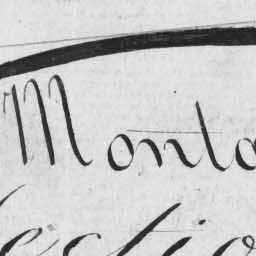 Monta
lectio